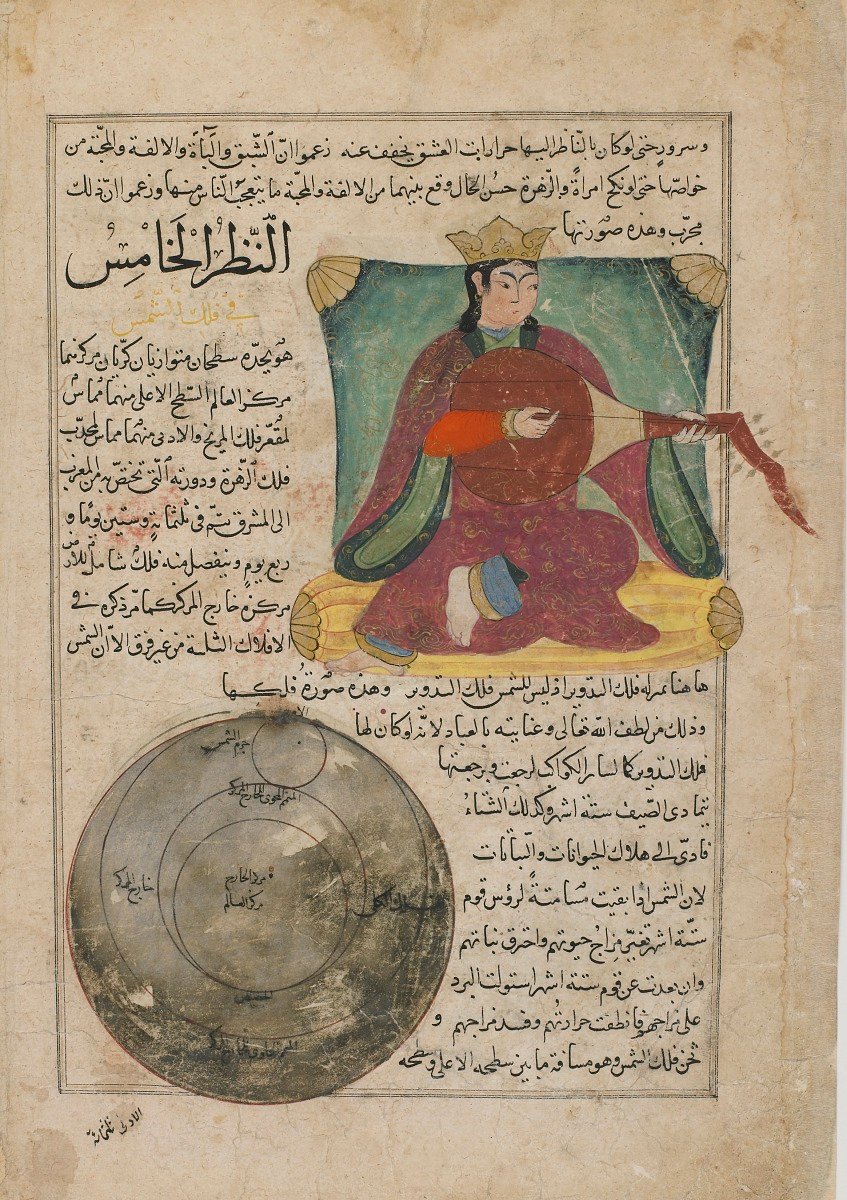 وسرور حتى لو كان بالناظر اليها حرارات العشق يخفف عنه زعموا ان الشبق والباة والالفة والمحبة من
خواصها حتى لو نكح امراة والزهرة حسن الحال وقع بينهما من الالفة والمحبة ما يتعجب الناس منها وزعموا ان ذلك
مجرب وهذه صورتها
النظر الخامس
في فلك الشمس
هو يحده سطحان متوازيان كريان مركزهما
مركز العالم السطح الاعلى منهما مماس
لمقعر فلك المريخ والادنى منهما مماس لمحدب
فلك الزهرة ودورته التي تختص به من المغرب
الى المشرق تتم في ثلثمائة وستين يوما و
ربع يوم وينفصل منه فلك شامل للارض
مركزه خارج المركز كما مر ذكره في
الافلاك الثلثة من غير فرق الا ان الشمس
هاهنا بمنزله فلك التدوير اذ ليس للشمس فلك التدوير وهذه صورة فلكها
وذلك من لطف الله تعالى وعنايته بالعباد لانه لو كان لها
فلك التدوير كما لساير الكواكب لرجعت وبرجعتها
يتمادى الصيف ستة اشهر وكذلك الشتاء
فادى الى هلاك الحيوانات والنباتات
لان الشمس اذا بقيت مسامتة لرؤس قوم
ستة اشهر تغير مزاج حيوتهم واحترق نباتهم
وان بعدت عن قوم ستة اشهر استولت البرد
على مزاجهم فانطفت حرارتهم وفسد مزاجهم و
ثخن فلك الشمس وهو مسافة ما بين سطحه الاعلى وسطحه
جرم الشمس
المتمم المحوى للخارج المركز
خارج المركز
مركز الخارج
مركز العالم
الحضيض
الادنى ثلثمائة